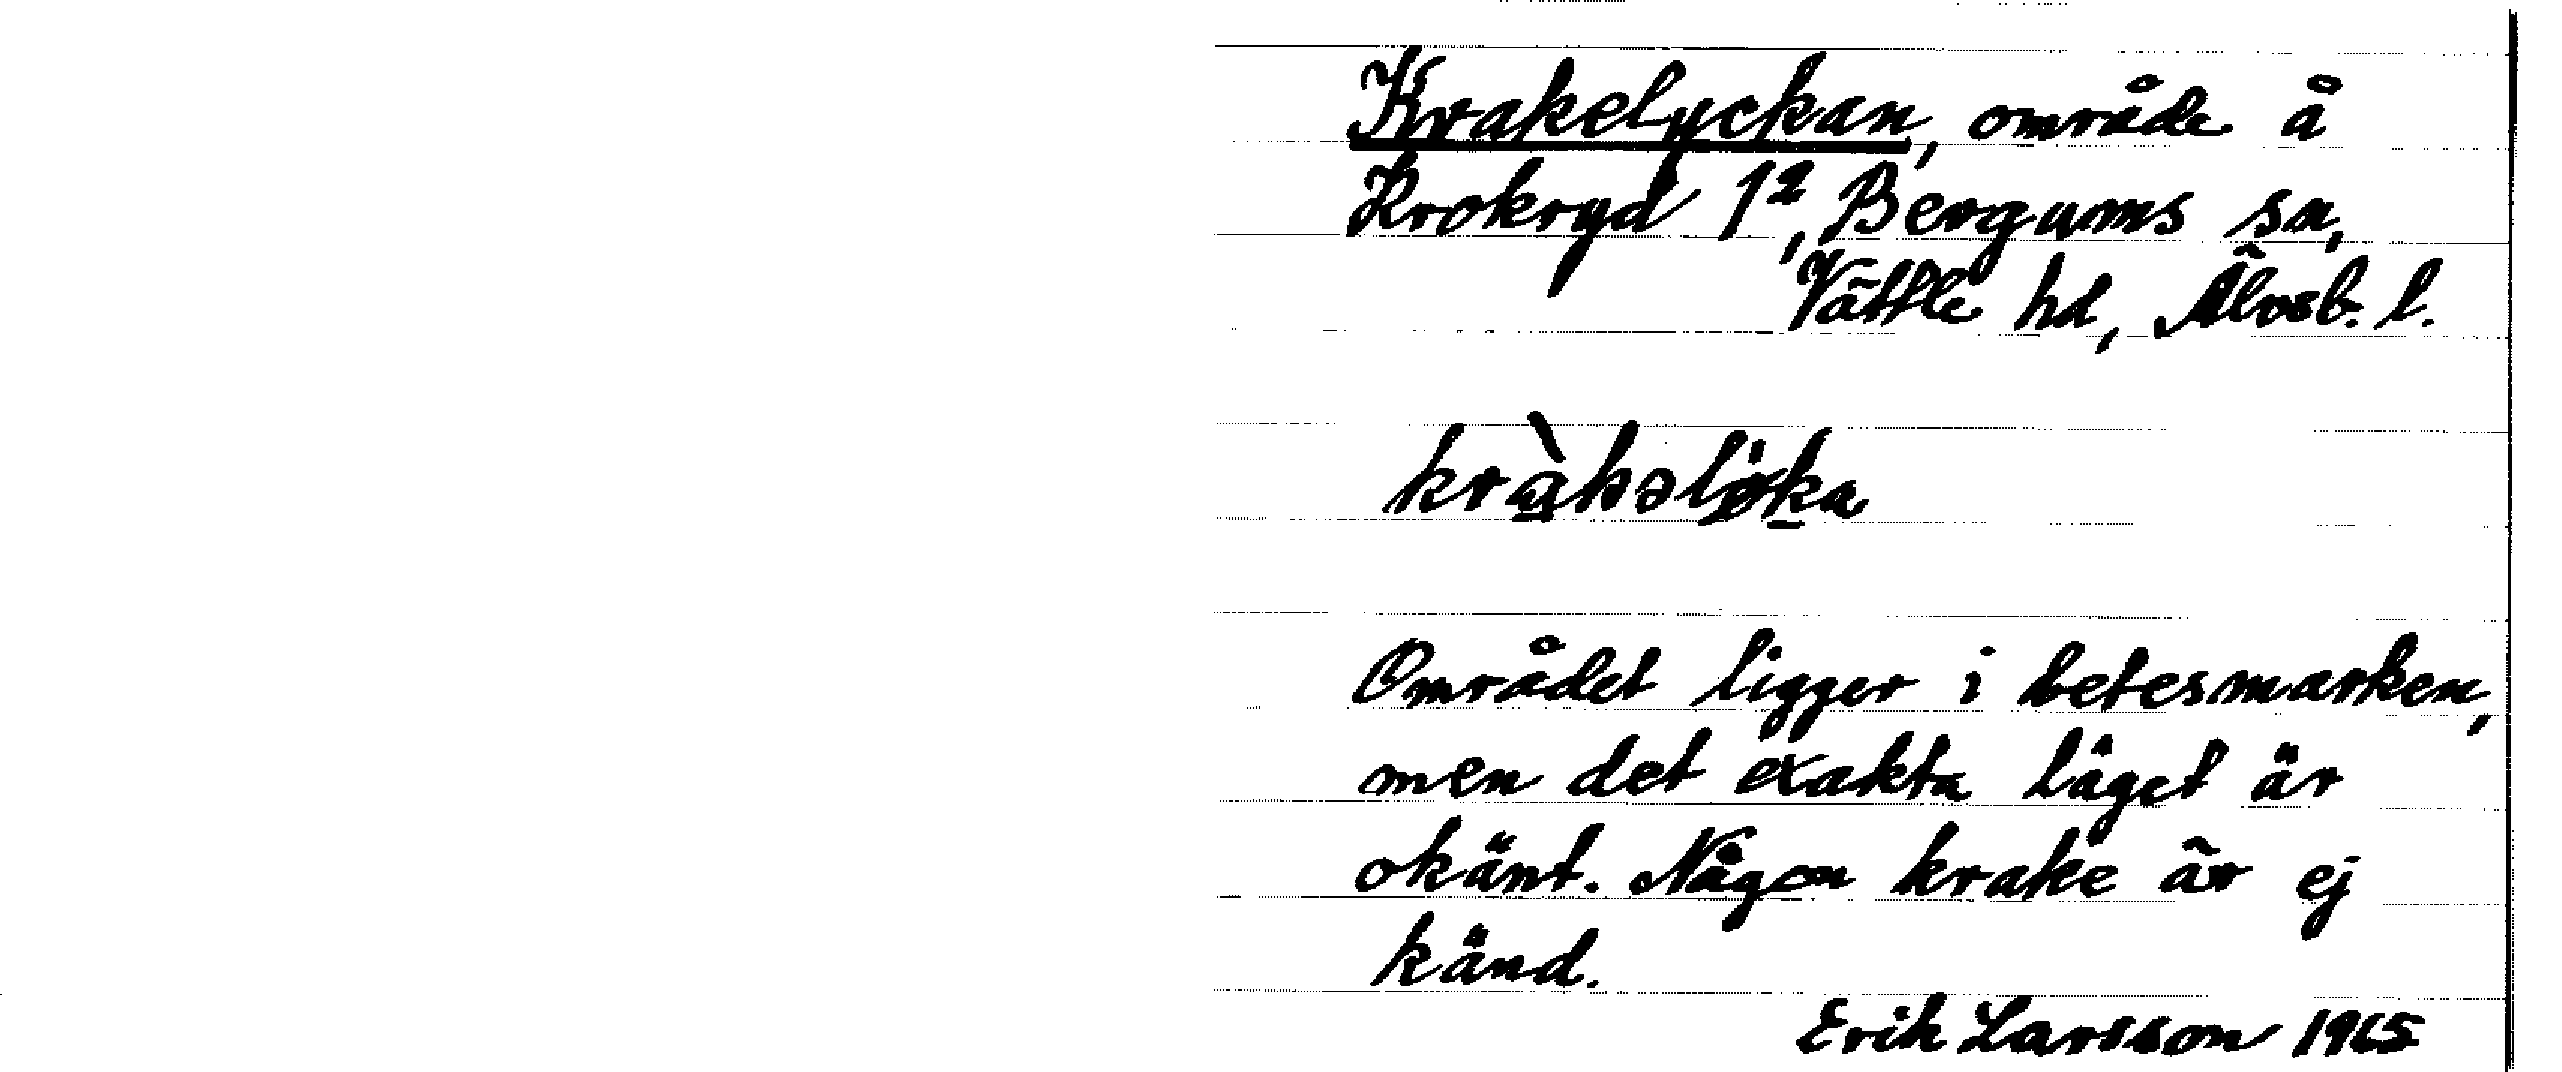 Krakelyckan, område å
Krokryd 1², Bergums sn,
Vättle hd, Älvsb. l.
kràkəlø̀ka
Området ligger i betesmarken,
men det exakta läget är
okänt. Någon krake är ej
känd.
Erik Larsson 1965